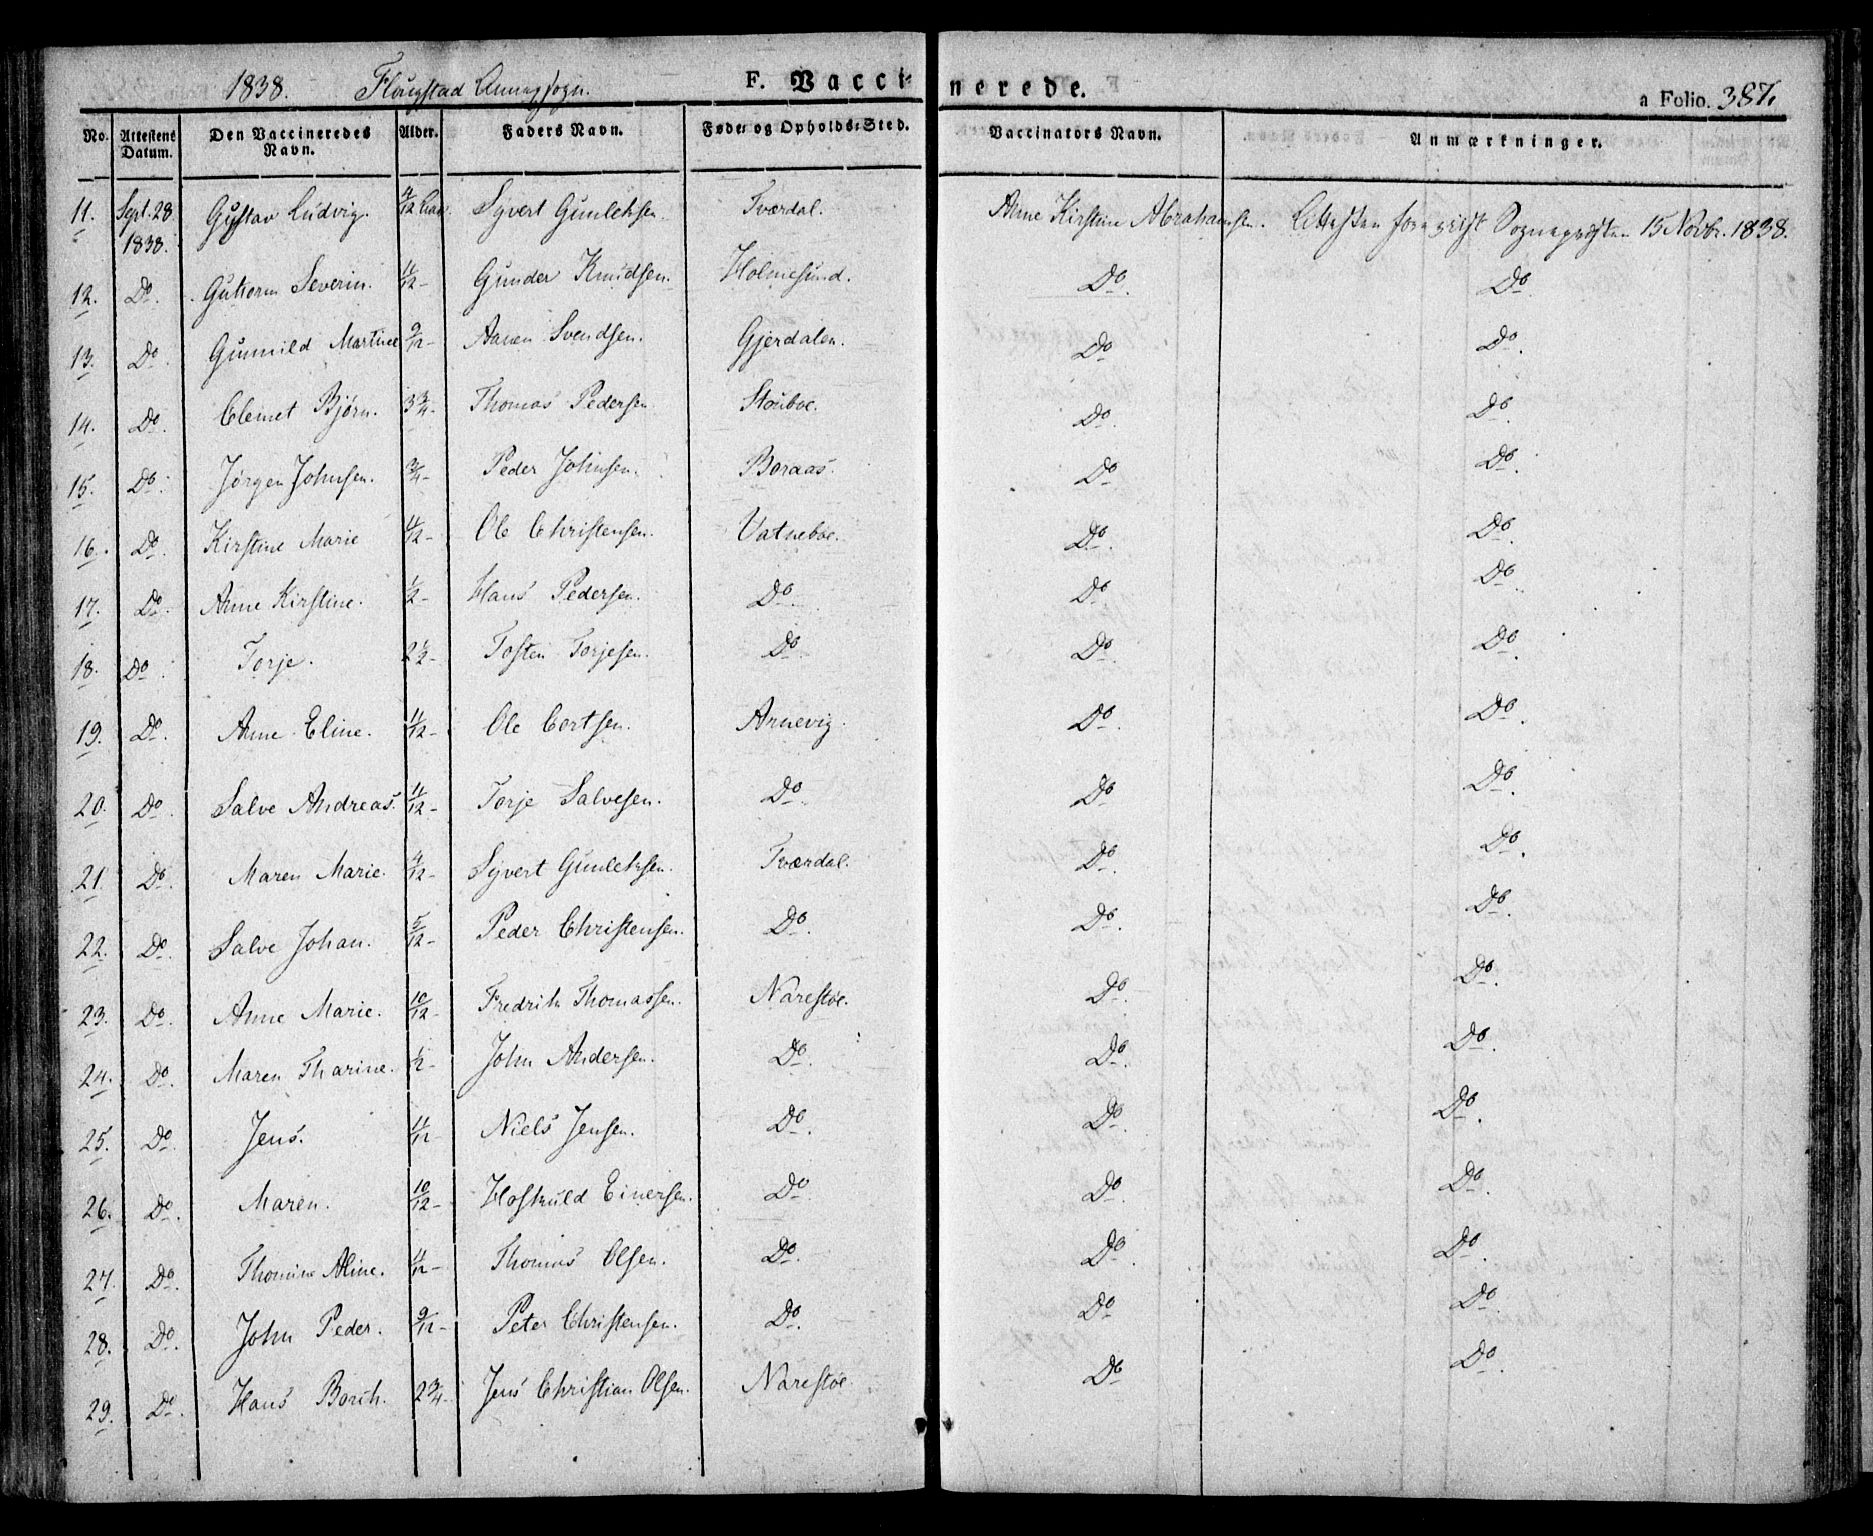 1838. Flougstad Annexsogn. F. Vaccinerede. a Folio. 387.
No. Attestens Datum. Den Vaccineredes Navn. Alder. Faders Navn. Føde- og Opholds-Sted. Vaccinators Navn. Anmærkninger.
11. Sept. 28 1838. Gustav Ludvig. 4/12 Aar Syvert Gunleksen. Tværdal. Anne Kirstine Abrahamsen. Attesten foreviist Sognepræsten 15 Novbr. 1838.
12. Do. Guttorm Severin. 11/12 - Gunder Knudsen. Holmesund. Do. Do.
13. Do. Gunnild Martine 9/12 - Aanen Svendsen. Gjerdalen. Do Do.
14. Do. Clemet Bjørn. 3 3/4 - Thomas Pedersen Stouboe. Do. Do.
15. Do. Jørgen Johnsen. 3/4 - Peder Johnsen. Boraas. Do Do.
16. Do. Kirstine Marie 11/12 - Ole Christensen. Vatneboe. Do. Do.
17. Do. Anne Kirstine. 1/2 - Hans Pedersen. Do. Do. Do.
18. Do. Torje. 2 1/2 - Tosten Torjesen. Do Do. Do.
19. Do. Anne Eline. 11/12 - Ole Cortsen. Arnevig. Do. Do.
20. Do. Salve Andreas. 11/12 - Torje Salvesen. Do. Do Do.
21. Do. Maren Marie. 4/12 - Syvert Gunleksen. Tværdal. Do. Do.
22. Do. Salve Johan. 5/12 - Peder Christensen. Do. Do. Do.
23. Do. Anne Marie. 10/12 - Fredrik Thomassen. Narestøe. Do. Do.
24. Do. Maren Tharine. 1/2 - John Andersen. Do. Do. Do.
25. Do. Jens. 11/12 - Niels Jensen. Do. Do. Do.
26. Do. Maren. 10/12 - Hoskuld Einersen. Do. Do. Do.
27. Do. Thomine Aline. 11/12 - Thomas Olsen. Do. Do. Do.
28. Do. John Peder. 9/12 - Peter Christensen. Do. Do Do.
29. Do. Hans Borch. 2 3/4 - Jens Christian Olsen. Narestøe Do Do.